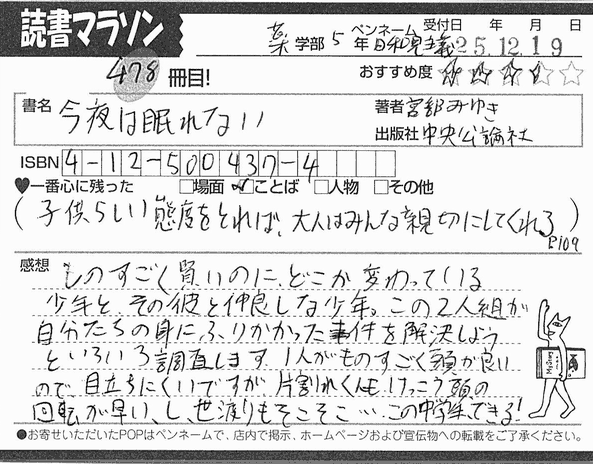 読書マラソン
薬学部 5年 ペンネーム 日和見主義 受付日 年 月 日
25.12.19
478冊目!
おすすめ度 ★★★☆☆
書名 今夜は眠れない
著者 宮部みゆき
出版社 中央公論社
ISBN 4-12-500437-4
♥一番心に残った □場面 ☑ことば □人物 □その他
(子供らしい態度をとれば、大人はみんな親切にしてくれる) P109
感想
ものすごく賢いのに、どこか変わっている
少年と、その彼と仲良しな少年。この2人組が
自分たちの身にふりかかった事件を解決しよう
といろいろ調査します。1人がものすごく頭が良い
ので、目立ちにくいですが片割れくんも、けっこう頭の
回転が早いし、世渡りもそこそこ…この中学生、できる!
●お寄せいただいたPOPはペンネームで、店内で掲示、ホームページおよび宣伝物への転載をご了承ください。